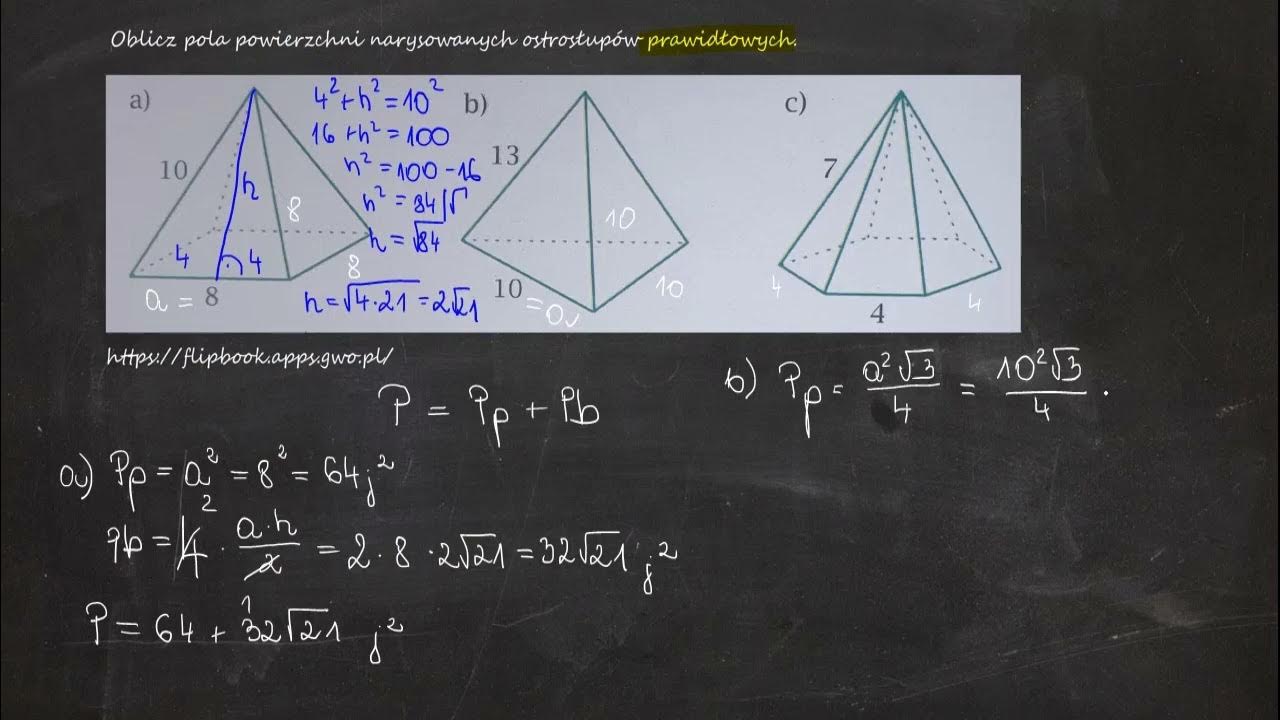 Oblicz pola powierzchni narysowanych ostrosłupów prawidłowych.
a)
10
h
8
4
4
8
a = 8
4² + h² = 10²
16 + h² = 100
h² = 100 - 16
h² = 84 |√
h = √84
h = √4·21 = 2√21
b)
13
10
10 = a
10
c)
7
4
4
4
https://flipbook.apps.gwo.pl/
P = Pp + Pb
a) Pp = a² = 8² = 64 j²
Pb = 4² · a·h/2 = 2 · 8 · 2√21 = 32√21 j²
P = 64 + 32√21 j²
b) Pp = a²√3/4 = 10²√3/4 .